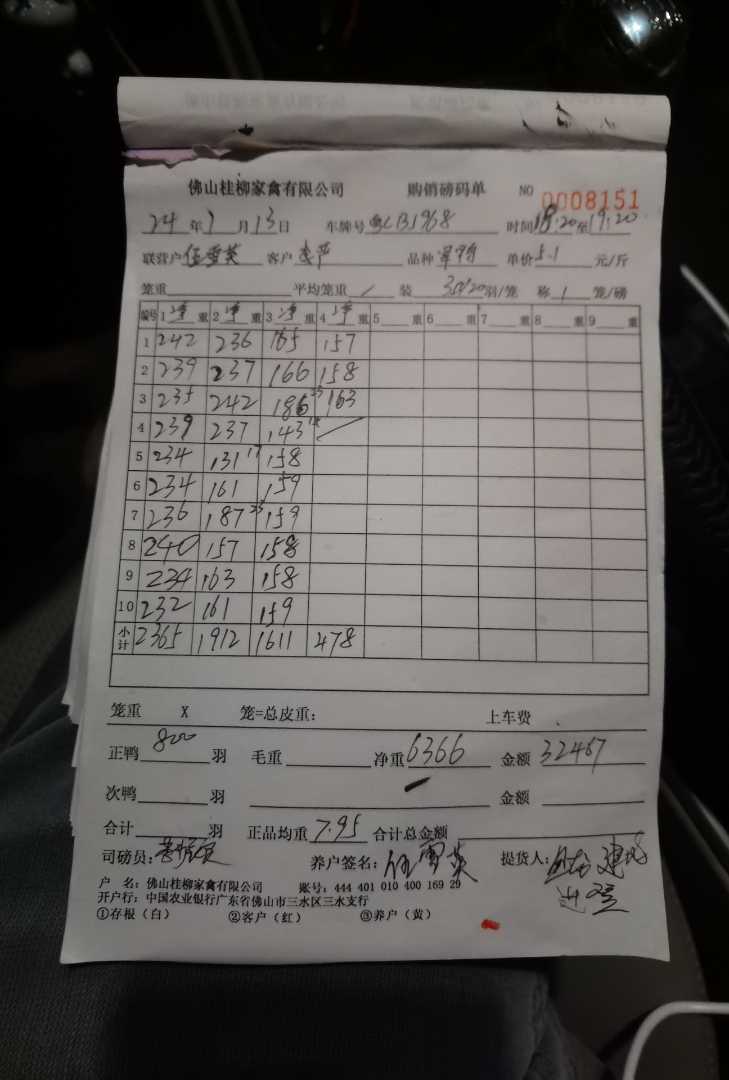 佛山桂柳家禽有限公司 购销磅码单 NO 0008151
24年7月13日 车牌号 时间18:20至19:20
联营户伍雪英 客户 品种 单价5.1元/斤
笼重 平均笼重 / 装 30/20羽/笼 称1笼/磅
编号 1净重 2净重 3净重 4净重 5重 6重 7重 8重 9重
1 242 236 165 157
2 239 237 166 158
3 235 242 186 23 163
4 239 237 143 18
5 234 131 17 158
6 234 161 159
7 236 187 23 159
8 240 157 158
9 234 163 158
10 232 161 159
小计 2365 1912 1611 478
笼重 X 笼=总皮重: 上车费
正鸭800羽 毛重 净重6366 金额32467
次鸭 羽 金额
合计 羽 正品均重7.95 合计总金额
司磅员: 养户签名:伍雪英 提货人:
户 名:佛山桂柳家禽有限公司 账号:444 401 010 400 169 29
开户行:中国农业银行广东省佛山市三水区三水支行
①存根(白) ②客户(红) ③养户(黄)